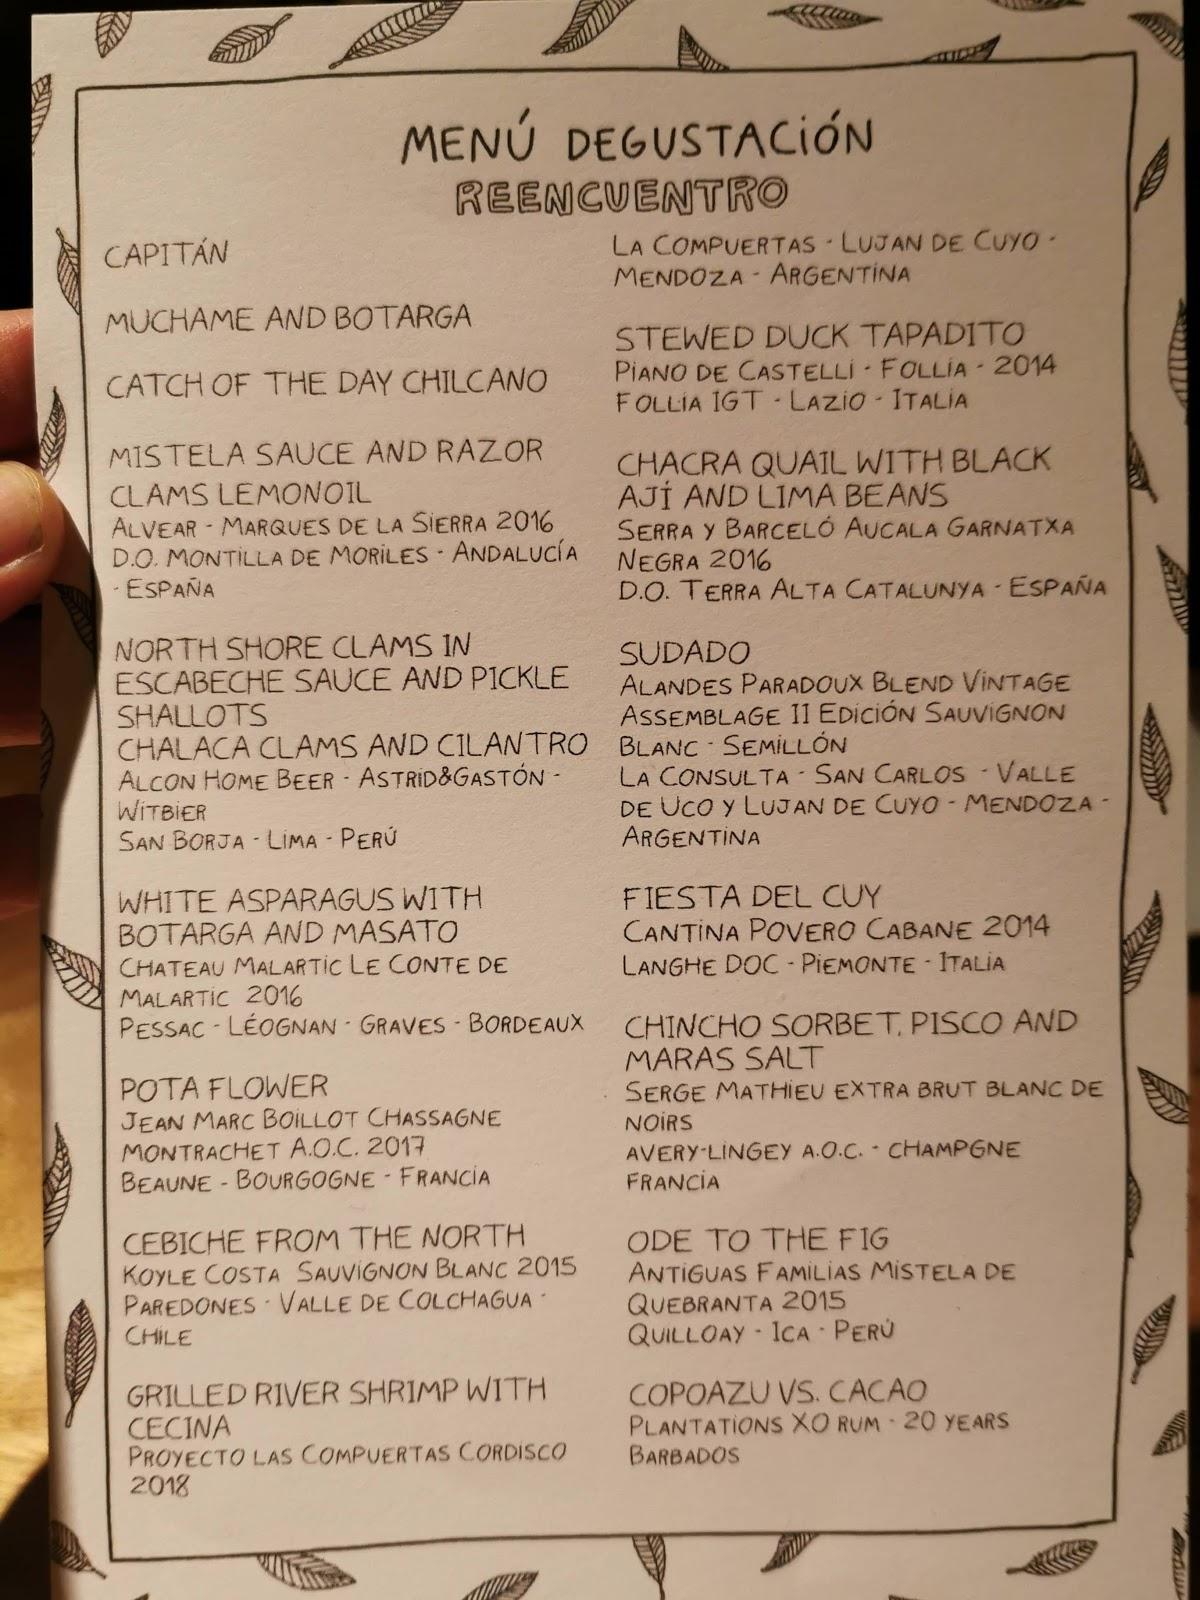 MENÚ DEGUSTACIÓN
REENCUENTRO
CAPITÁN
MUCHAME AND BOTARGA
CATCH OF THE DAY CHILCANO
MISTELA SAUCE AND RAZOR
CLAMS LEMONOIL
ALVEAR - MARQUES DE LA SIERRA 2016
D.O. MONTILLA DE MORILES - ANDALUCÍA
- ESPAÑA
NORTH SHORE CLAMS IN
ESCABECHE SAUCE AND PICKLE
SHALLOTS
CHALACA CLAMS AND CILANTRO
ALCON HOME BEER - ASTRID&GASTÓN -
WITBIER
SAN BORJA - LIMA - PERÚ
WHITE ASPARAGUS WITH
BOTARGA AND MASATO
CHATEAU MALARTIC LE CONTE DE
MALARTIC 2016
PESSAC - LÉOGNAN - GRAVES - BORDEAUX
POTA FLOWER
JEAN MARC BOILLOT CHASSAGNE
MONTRACHET A.O.C. 2017
BEAUNE - BOURGOGNE - FRANCIA
CEBICHE FROM THE NORTH
KOYLE COSTA SAUVIGNON BLANC 2015
PAREDONES - VALLE DE COLCHAGUA -
CHILE
GRILLED RIVER SHRIMP WITH
CECINA
PROYECTO LAS COMPUERTAS CORDISCO
2018
LA COMPUERTAS - LUJAN DE CUYO -
MENDOZA - ARGENTINA
STEWED DUCK TAPADITO
PIANO DE CASTELLI - FOLLIA - 2014
FOLLIA IGT - LAZIO - ITALIA
CHACRA QUAIL WITH BLACK
AJÍ AND LIMA BEANS
SERRA Y BARCELÓ AUCALA GARNATXA
NEGRA 2016
D.O. TERRA ALTA CATALUNYA - ESPAÑA
SUDADO
ALANDES PARADOUX BLEND VINTAGE
ASSEMBLAGE II EDICIÓN SAUVIGNON
BLANC - SEMILLÓN
LA CONSULTA - SAN CARLOS - VALLE
DE UCO Y LUJAN DE CUYO - MENDOZA -
ARGENTINA
FIESTA DEL CUY
CANTINA POVERO CABANE 2014
LANGHE DOC - PIEMONTE - ITALIA
CHINCHO SORBET, PISCO AND
MARAS SALT
SERGE MATHIEU EXTRA BRUT BLANC DE
NOIRS
AVERY-LINGEY A.O.C. - CHAMPGNE
FRANCIA
ODE TO THE FIG
ANTIGUAS FAMILIAS MISTELA DE
QUEBRANTA 2015
QUILLOAY - ICA - PERÚ
COPOAZU VS. CACAO
PLANTATIONS XO RUM - 20 YEARS
BARBADOS